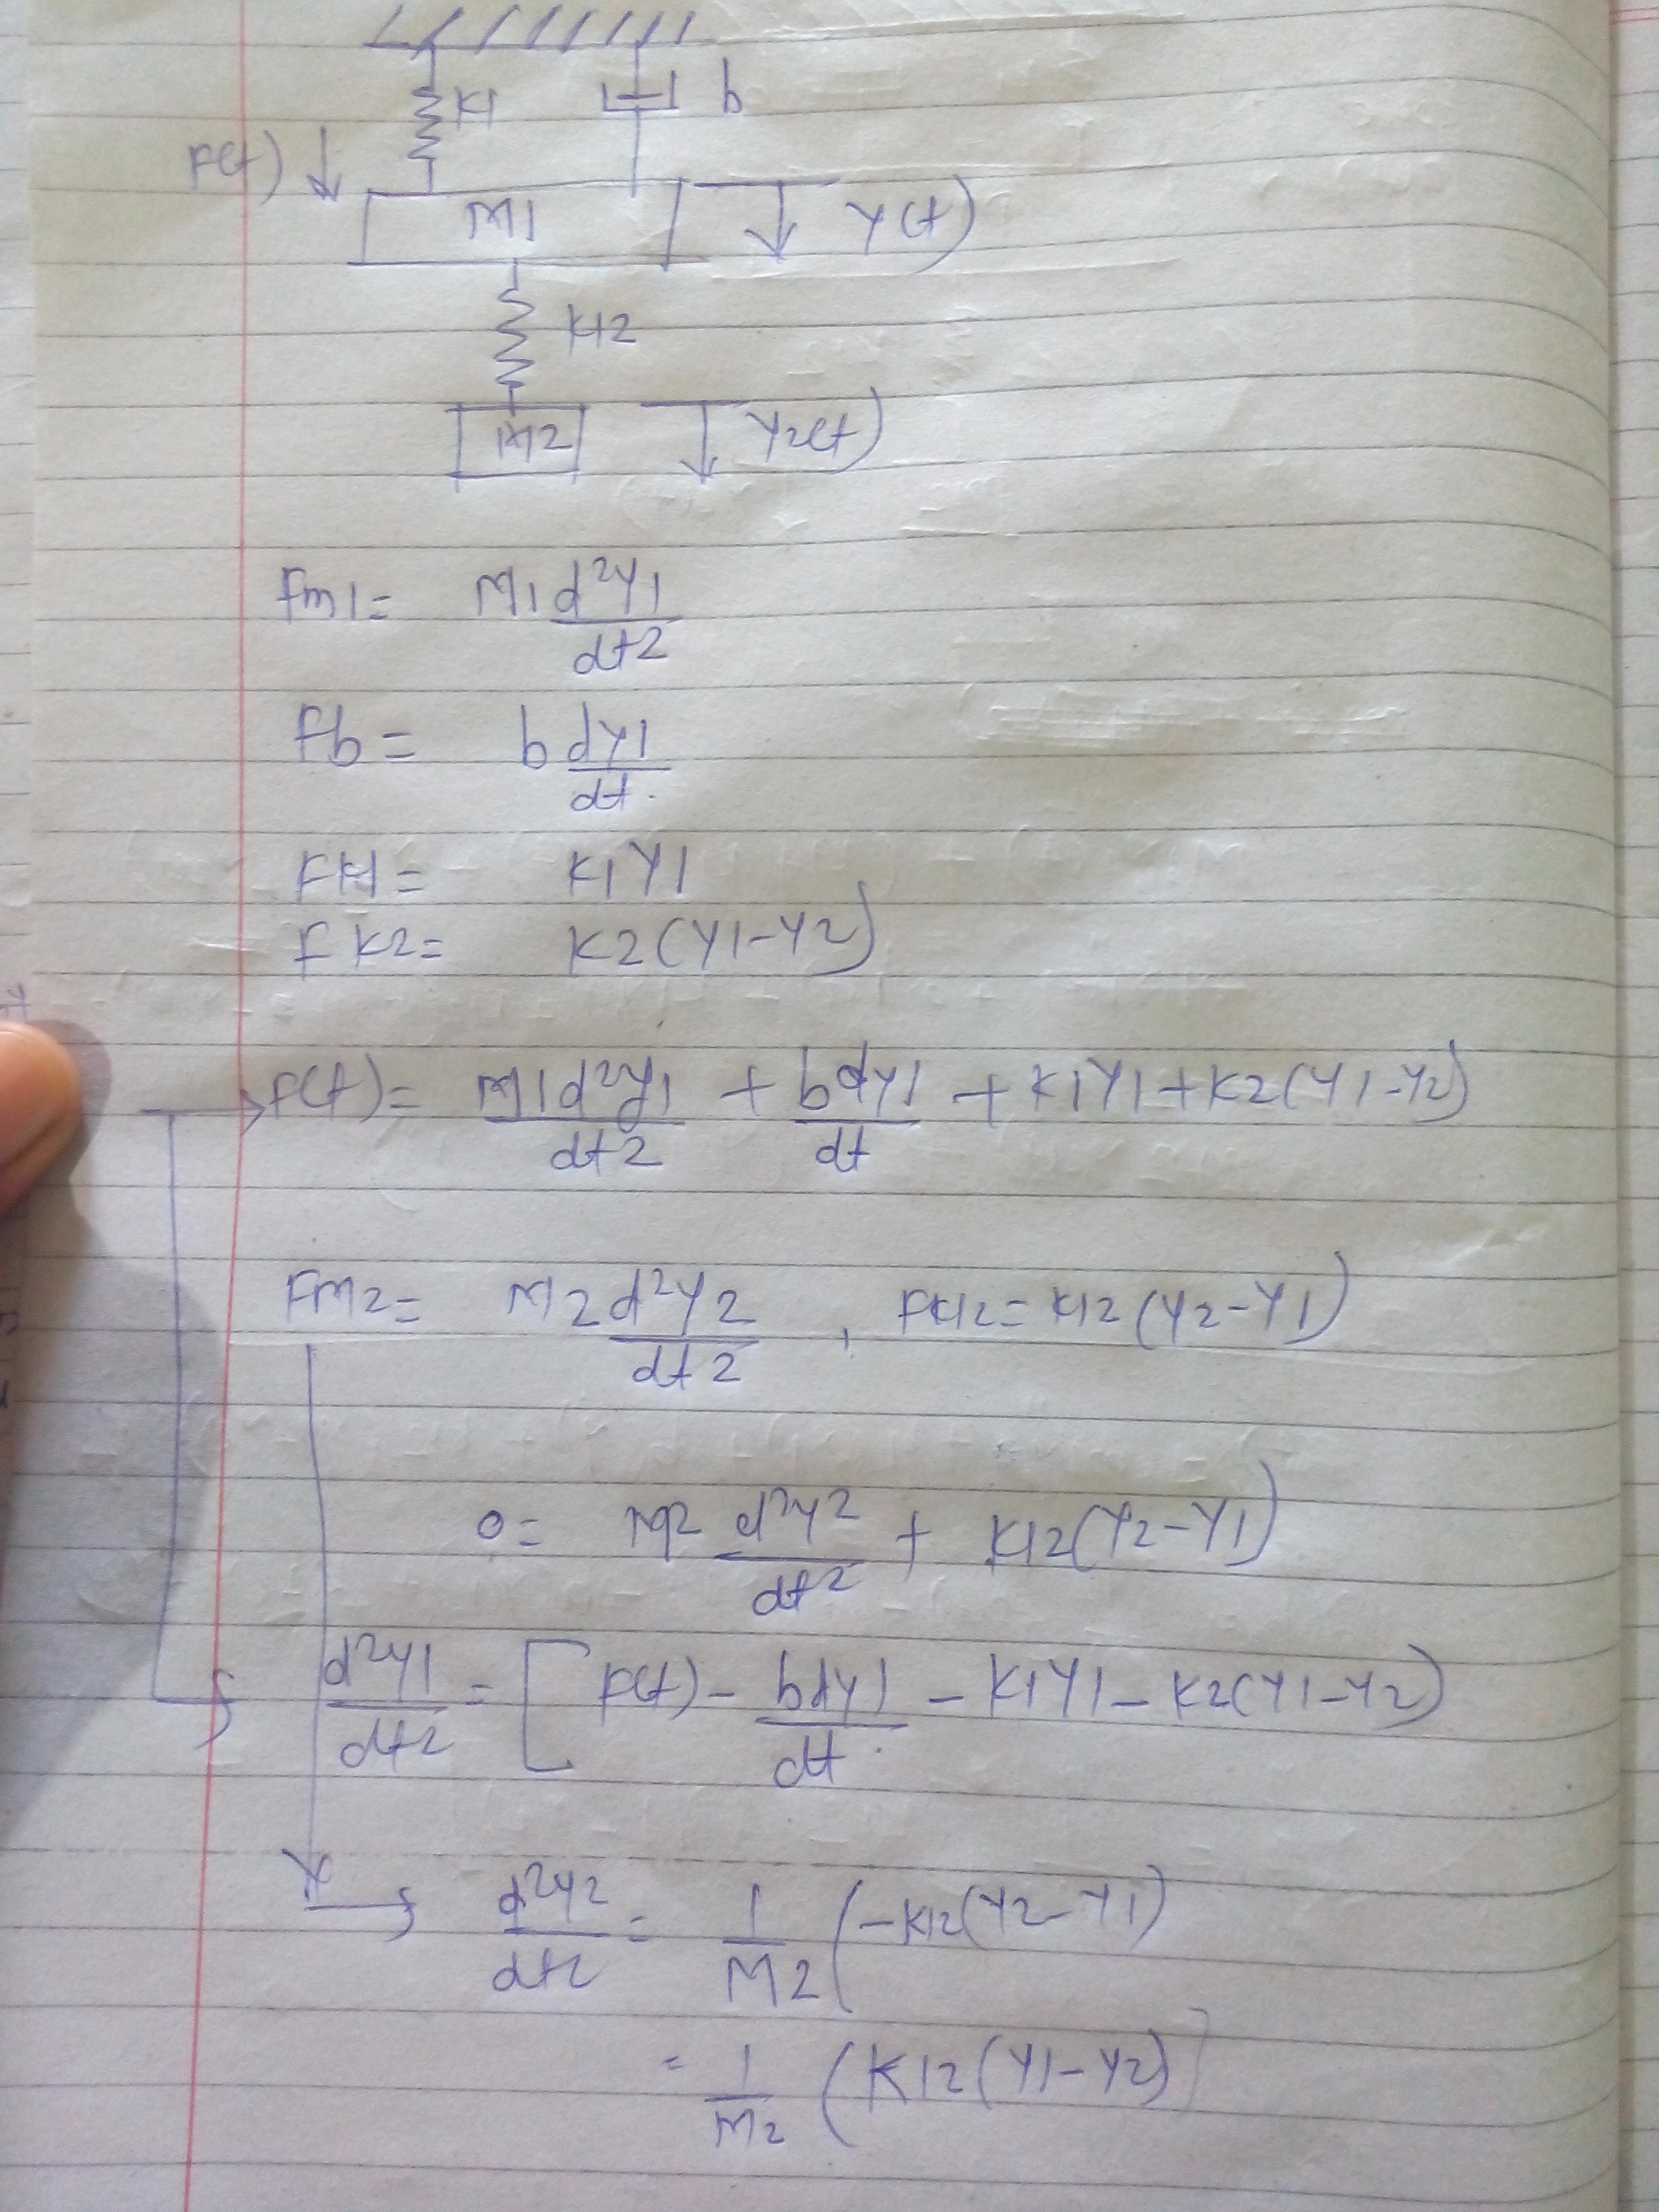 K1
b
F(t) ↓
M1
↓ Y(t)
K12
M2
↓ Y2(t)
Fm1 = M1 d²Y1/dt2
Fb = b dY1/dt.
FK1 = K1Y1
FK2 = K2(Y1-Y2)
F(t) = M1d²y1/dt2 + bdY1/dt + K1Y1 + K2(Y1-Y2)
FM2 = M2 d²Y2/dt2 , FK12 = K12(Y2-Y1)
0 = M2 d²Y2/dt2 + K12(Y2-Y1)
d²Y1/dt2 = [ F(t) - bdy1/dt. - K1Y1 - K2(Y1-Y2)
d²Y2/dt2 = 1/M2 (-K12(Y2-Y1)
= 1/M2 (K12(Y1-Y2)